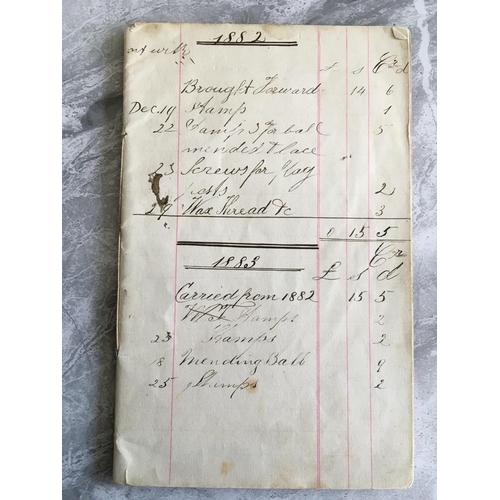 1882
Cr
£ s d
Brought Forward 14 6
Dec. 19 Stamp 1
22 Stamps 3 For ball 5
mending & lace
23 Screws for Flag "
posts 2
29 Wax Thread &c 3
0 15 5
Cr
1883 £ s d
Carried from 1882 15 5
Stamps 2
23 Stamps 2
18 Mending Ball 9
25 Stamps 2